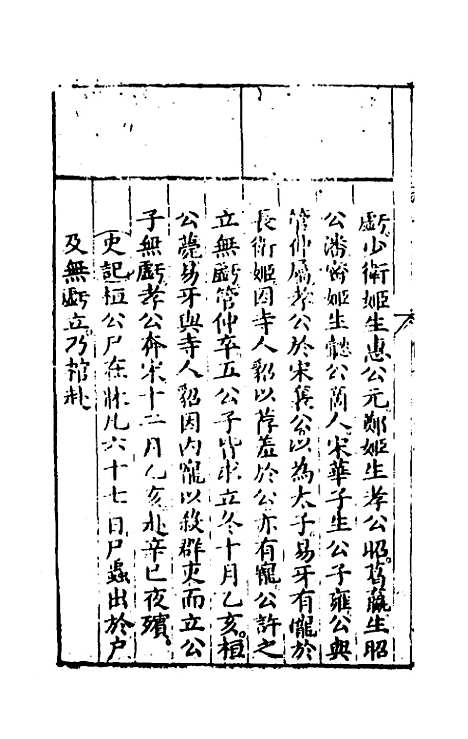 虧少衛姬生惠公元鄭姬生孝公昭葛嬴生昭
公潘宻姬生懿公商人宋華子生公子雍公與
管仲屬孝公於宋襄公以為太子易牙有寵於
長衛姬因寺人貂以荐羞於公亦有寵公許之
立無虧管仲卒五公子皆求立冬十月乙亥桓
公薨易牙與寺人貂因内寵以殺群吏而立公
子無虧孝公奔宋十二月乙亥赴辛巳夜殯
史記桓公尸在牀凡六十七日尸蟲出於户
及無虧立乃棺赴